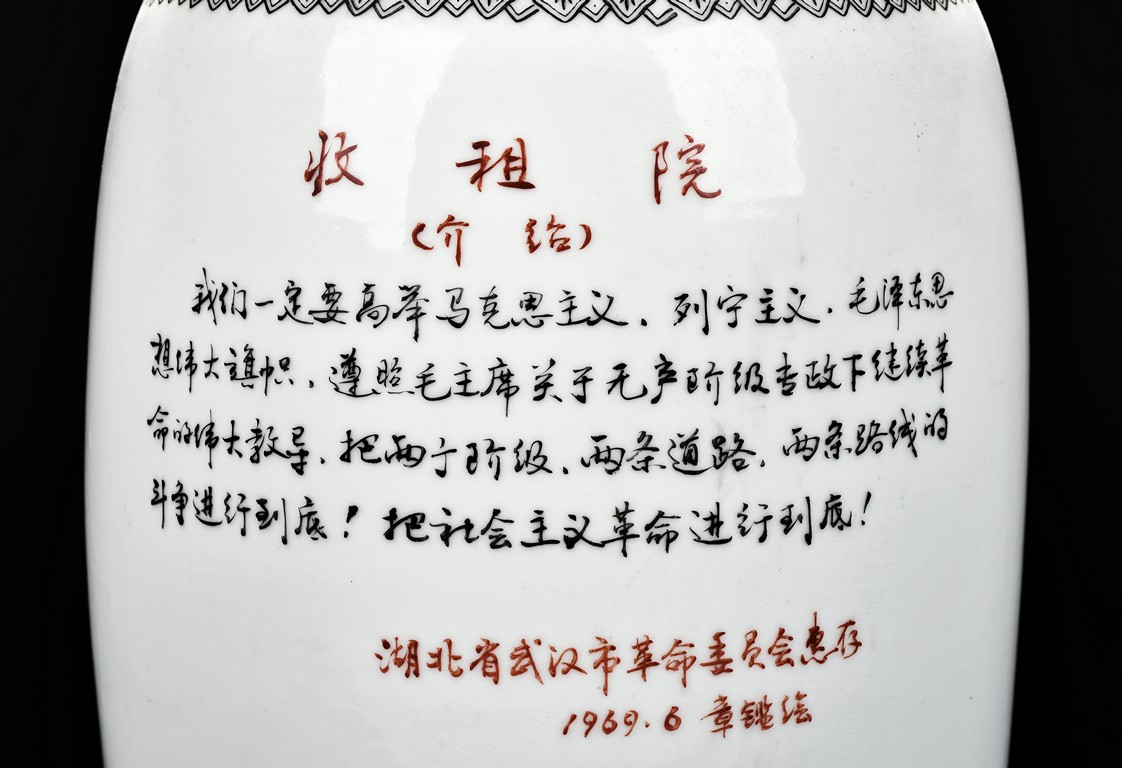 收租院
(介绍)
我们一定要高举马克思主义、列宁主义、毛泽东思
想伟大旗帜、遵照毛主席关于无产阶级专政下继续革
命的伟大教导、把两个阶级、两条道路、两条路线的
斗争进行到底！把社会主义革命进行到底！
湖北省武汉市革命委员会惠存
1969.6 章鑑绘